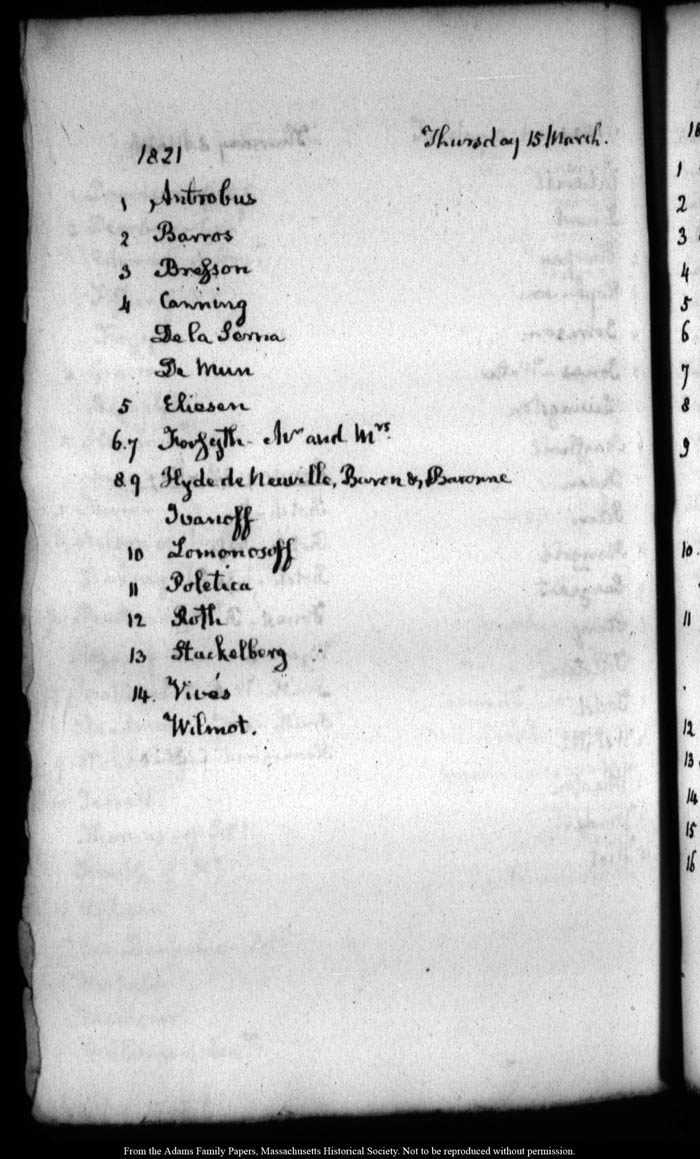 1821
Thursday 15 March.
1 Antrobus
2 Barros
3 Bresson
4 Canning
De la Serna
De Mun
5 Eliasen
6.7 Forsyth - Mr and Mrs.
8.9 Hyde de Neuville, Baron &, Baronne
Ivanoff
10 Lomonosoff
11 Poletica
12 Roth
13 Stackelberg
14. Vivés
Wilmot.
1
2
3
4
5
6
7
8
9
10.
11
12
13
14
15
16
From the Adams Family Papers, Massachusetts Historical Society. Not to be reproduced without permission.